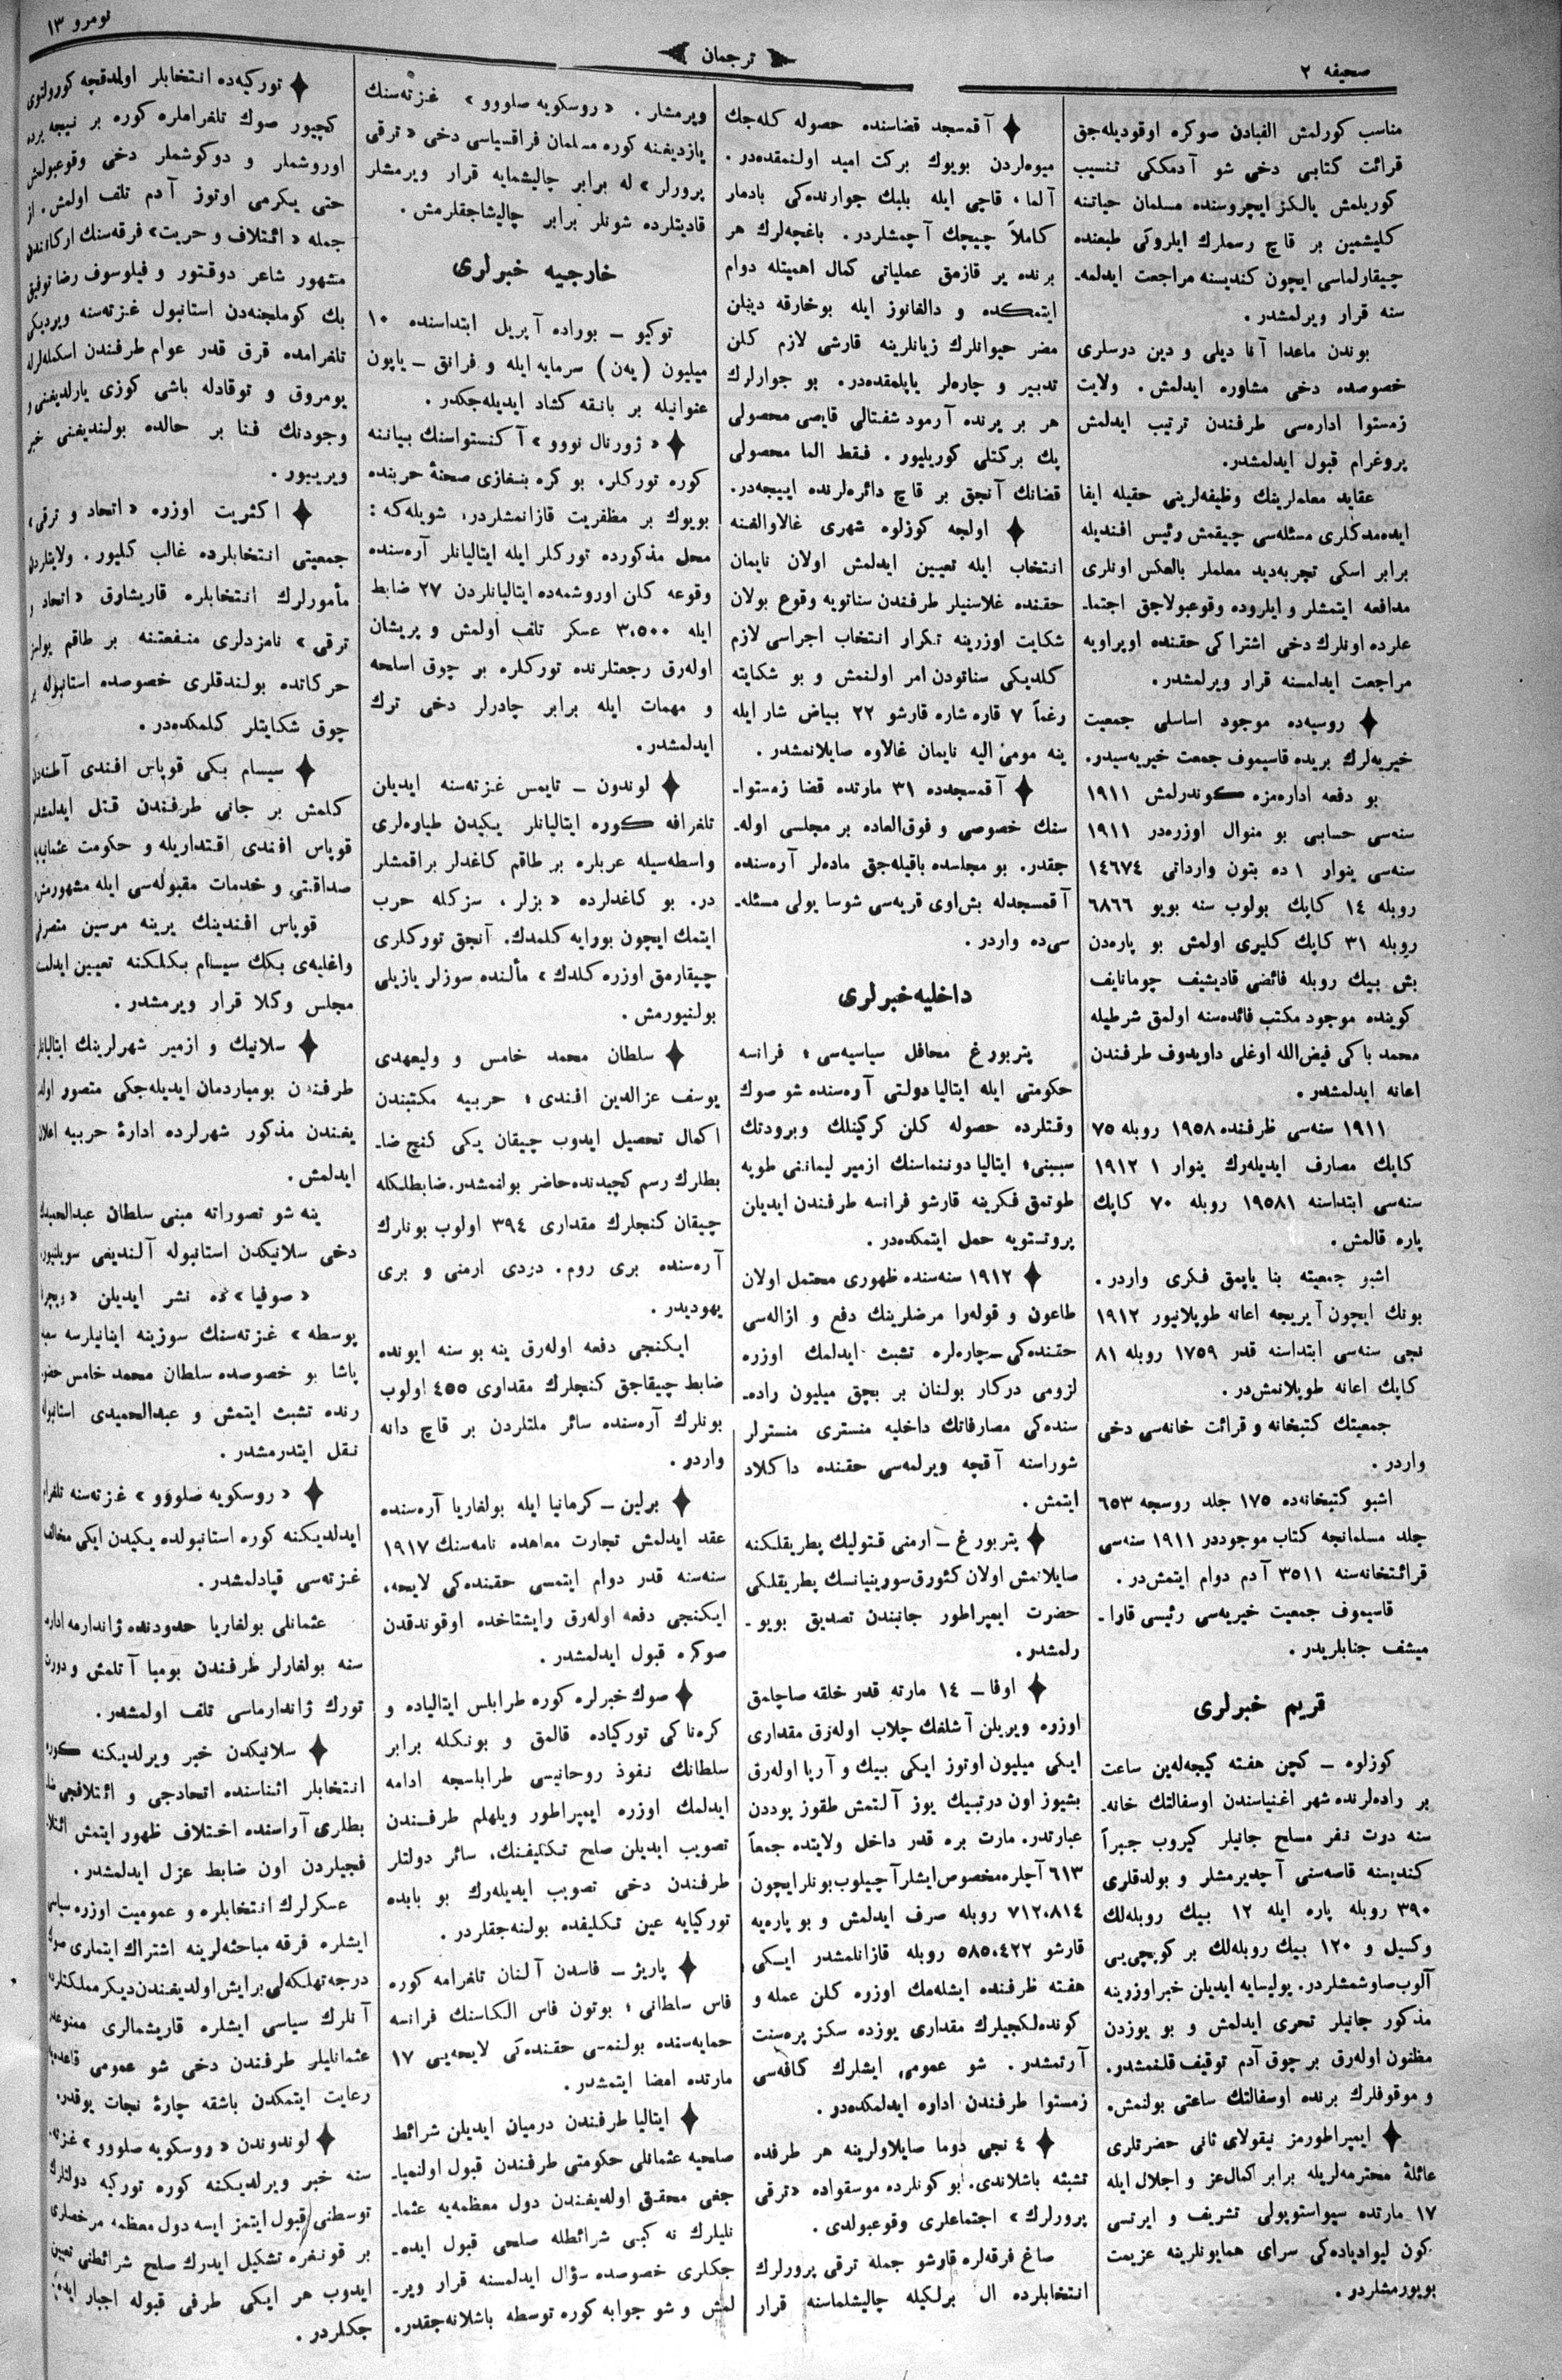 صحیفه ٢
ترجمان
نومرو ١٣
مناسب کورلمش الفبادن صوکره اوقودیله‌جق
قرائت کتابی دخی شو آدمککی تنسیب
کوریلمش یالکز ایچروسنده مسلمان حیاتنه
کلیشمین بر قاچ رسملرك ایلروکی طبعنده
چیقارلماسی ایچون کندیسنه مراجعت ایدلمه‌ـ
سنه قرار ویرلمشدر.
بوندن ماعدا آنا دیلی و دین درسلری
خصوصده دخی مشاوره ایدلمش. ولایت
زمستوا اداره‌سی طرفندن ترتیب ایدلمش
پروغرام قبول ایدلمشدر.
عقاید معلملرینك وظیفه‌لرینی حقیله ایفا
ایده‌مدکلری مسئله‌سی چیقمش رئیس افندیله
برابر اسکی تجربه‌دید معلملر بالعکس اونلری
مدافعه ایتمشلر و ایلروده وقوعبولاجق اجتما‌ـ
علرده اونلرك دخی اشتراکی حقنده اوپراویه
مراجعت ایدلمسنه قرار ویرلمشدر.
روسیه‌ده موجود اساسلی جمعیت
خیریه‌لرك بریده قاسیموف جمعت خیریه‌سیدر.
بو دفعه اداره‌مزه کوندرلمش ١٩١١
سنه‌سی حسابی بو منوال اوزره‌در ١٩١١
سنه‌سی ینوار ١ ده بتون وارداتی ١٤٦٧٤
روبله ١٤ کاپك بولوب سنه بویو ٦٨٦٦
روبله ٣١ کاپك کلیری اولمش بو پاره‌دن
بش بیك روبله فائضی قادیشیف چومانایف
کوینده موجود مکتب فائده‌سنه اولمق شرطیله
محمد باکی فیض‌الله اوغلی داویدوف طرفندن
اعانه ایدلمشدر.
١٩١١ سنه‌سی ظرفنده ١٩٥٨ روبله ٧٥
کاپك مصارف ایدیله‌رك ینوار ١ ١٩١٢
سنه‌سی ابتداسنه ١٩٥٨١ روبله ٧٠ کاپك
پاره قالمش.
اشبو جمعیته بنا یاپمق فکری واردر.
بونك ایچون آیریجه اعانه طوپلانیور ١٩١٢
نجی سنه‌سی ابتداسنه قدر ١٧٥٩ روبله ٨١
کاپك اعانه طوپلانمش‌در.
جمعیتك کتبخانه و قرائت خانه‌سی دخی
واردر.
اشبو کتبخانه‌ده ١٧٥ جلد روسچه ٦٥٣
جلد مسلمانچه کتاب موجوددر ١٩١١ سنه‌سی
قرائتخانه‌سنه ٣٥١١ آدم دوام ایتمش‌در.
قاسیموف جمعیت خیریه‌سی رئیسی قاوا ـ
میشف جنابلریدر.
قریم خبرلری
کوزلوه ـ کچن هفته کیجه‌له‌ین ساعت
بر راده‌لرنده شهر اغنیاسندن اوسفالتك خانه‌ـ
سنه دوت نفر مسلح جانیلر کیروب جبراً
کندیسنه قاصه‌سنی آچدیرمشلر و بولدقلری
٣٩٠ روبله پاره ایله ١٢ بیك روبله‌لك
وکسیل و ١٢٠ بیك روبله‌لك بر کوپچی‌یی
آلوب صاوشمشلردر. پولیسایه ایدیلن خبر اوزرینه
مذکور جانیلر تحری ایدلمش و بو یوزدن
مظنون اوله‌رق بر چوق آدم توقیف قلنمشدر.
و موقوفلرك برنده اوسفالتك ساعتی بولنمش.
ایمپراطورمز نیقولای ثانی حضرتلری
عائلهٔ محترمه‌لریله برابر کمال عز و اجلال ایله
١٧ مارتده سیواستوپولی تشریف و ایرتسی
کون لیوادیاده‌کی سرای همایونلرینه عزیمت
بویورمشلردر.
آقمسجد قضاسنده حصوله کله‌جك
میوه‌لردن بویوك برکت امید اولنمقده‌در.
آلما، قاچی ایله بلبك جوارنده‌کی بادمار
کاملاً چیچك آچمشلردر. باغچه‌لرك هر
برنده یر قازمق عملیاتی کمال اهمیتله دوام
ایتمکده و دالغانوز ایله بوخارقه دینلن
مضر حیوانلرك زیانلرینه قارشی لازم کلن
تدبیر و چاره‌لر یاپلمقده‌در. بو جوارلرك
هر بر یرنده آرمود شفتالی قایصی محصولی
پك برکتلی کوریلیور. فقط الما محصولی
قضانك آنجق بر قاچ دائره‌لرنده اییجه‌در.
اولجه کوزلوه شهری غالاوالغنه
انتخاب ایله تعیین ایدلمش اولان نایمان
حقنده غلاسنیلر طرفندن سناتویه وقوع بولان
شکایت اوزرینه تکرار انتخاب اجراسی لازم
کلدیکی سناتودن امر اولنمش و بو شکایته
رغماً ٧ قاره شاره قارشو ٢٢ بیاض شار ایله
ینه مومیٔ الیه نایمان غالاوه صایلانمشدر.
آقمسجدده ٣١ مارتده قضا زمستوا‌ـ
سنك خصوصی و فوق‌العاده بر مجلسی اوله‌ـ
جقدر. بو مجلسده باقیله‌جق ماده‌لر آره‌سنده
آقمسجدله بش‌اوی قریه‌سی شوسا یولی مسئله‌ـ
سی‌ده واردر.
داخلیه خبرلری
پتربورغ محافل سیاسیه‌سی؛ فرانسه
حکومتی ایله ایتالیا دولتی آره‌سنده شو صوك
وقتلرده حصوله کلن کرکینلك وبرودتك
سببنی؛ ایتالیا دوننماسنك ازمیر لیماننی طوپه
طوتمق فکرینه قارشو فرانسه طرفندن ایدیلن
پروتستویه حمل ایتمکده‌در.
١٩١٢ سنه‌سنده ظهوری محتمل اولان
طاعون و قوله‌را مرضلرینك دفع و ازاله‌سی
حقنده‌کی چاره‌لره تشبث ایدلمك اوزره
لزومی درکار بولنان بر بچق میلیون راده‌ـ
سنده‌کی مصارفاتك داخلیه منستری منسترلر
شوراسنه آقچه ویرلمه‌سی حقنده داکلاد
ایتمش.
پتربورغ ـ ارمنی قتولیك پطریقلکنه
صایلانمش اولان کئورق سورینیانسك پطریقلکی
حضرت ایمپراطور جانبندن تصدیق بویو ـ
رلمشدر.
اوفا ـ ١٤ مارته قدر خلقه صاچلمق
اوزره ویریلن آشلقك چلاب اوله‌رق مقداری
ایکی میلیون اوتوز ایکی بیك و آرپا اوله‌رق
بشیوز اون درتبیك یوز آلتمش طقوز پوددن
عبارتدر. مارت بره قدر داخل ولایتده جمعاً
٦١٣ آجلره مخصوص ایشلر آچیلوب بونلر ایچون
٧١٢،٨١٤ روبله صرف ایدلمش و بو پاره‌یه
قارشو ٥٨٥،٤٢٢ روبله قازانلمشدر ایسکی
هفته ظرفنده ایشله‌مك اوزره کلن عمله و
کونده‌لکجیلرك مقداری یوزده سکز پره‌سنت
آرتمشدر. شو عمومی ایشلرك کافه‌سی
زمستوا طرفندن اداره ایدلمکده‌در.
٤ نجی دوما صایلاولرینه هر طرفده
تشبثه باشلاندی. بو کونلرده موسقواده «ترقی
پرورلرك» اجتماعلری وقوعبولدی.
صاغ فرقه‌لره قارشو جمله ترقی پرورلرك
انتخابلرده ال برلکیله چالیشلماسنه قرار
ویرمشلر. «روسکویه صلووو» غزته‌سنك
یازدیغنه کوره مسلمان فراقسیاسی دخی «ترقی
پرورلر» له برابر چالیشمایه قرار ویرمشلر
قادیتلرده شونلر برابر چالیشاجقلرمش.
خارجیه خبرلری
توکیو ـ بوراده آپریل ابتداسنده ١٠
میلیون (یه‌ن) سرمایه ایله و فرانق ـ یاپون
عنوانیله بر بانقه کشاد ایدیله‌جکدر.
«ژورنال نووو» آکنستواسنك بیاننه
کوره تورکلر، بو کره بنغازی صحنهٔ حربنده
بویوك بر مظفریت قازانمشلردر، شویله‌که:
محل مذکورده تورکلر ایله ایتالیانلر آره‌سنده
وقوعه کلن اوروشمه‌ده ایتالیانلردن ٢٧ ضابط
ایله ٣،٥٠٠ عسکر تلف اولمش و پریشان
اوله‌رق رجعتلرنده تورکلره بر چوق اسلحه
و مهمات ایله برابر چادرلر دخی ترك
ایدلمشدر.
لوندون ـ تایمس غزته‌سنه ایدیلن
تلغرافه کوره ایتالیانلر یکیدن طیاره‌لری
واسطه‌سیله عربلره بر طاقم کاغدلر براقمشلر
در. بو کاغدلرده «بزلر، سزکله حرب
ایتمك ایچون بورایه کلمدك. آنجق تورکلری
چیقارمق اوزره کلدك» مألنده سوزلر یازیلی
بولنیورمش.
سلطان محمد خامس و ولیعهدی
یوسف عزالدین افندی؛ حربیه مکتبندن
اکمال تحصیل ایدوب چیقان یکی کنج ضا‌ـ
بطلرك رسم کچیدنده حاضر بولنمشدر. ضابطلکله
چیقان کنجلرك مقداری ٣٩٤ اولوب بونلرك
آره‌سنده بری روم. دردی ارمنی و بری
یهودیدر.
ایکنجی دفعه اوله‌رق ینه بو سنه ایونده
ضابط چیقاجق کنجلرك مقداری ٤٥٥ اولوب
بونلرك آره‌سنده سائر ملتلردن بر قاچ دانه
واردر.
برلین ـ کرمانیا ایله بولغاریا آره‌سنده
عقد ایدلمش تجارت معاهده نامه‌سنك ١٩١٧
سنه‌سنه قدر دوام ایتمسی حقنده‌کی لایحه،
ایکنجی دفعه اوله‌رق رایشتاخده اوقوندقدن
صوکره قبول ایدلمشدر.
صوك خبرلره کوره طرابلس ایتالیاده و
کره‌ناکی تورکیاده قالمق و بونکله برابر
سلطانك نفوذ روحانیسی طرابلسچه ادامه
ایدلمك اوزره ایمپراطور ویلهلم طرفندن
تصویب ایدیلن صلح تکلیفنك، سائر دولتلر
طرفندن دخی تصویب ایدیله‌رك بو بابده
تورکیایه عین تکلیفده بولنه‌جقلردر.
پاریژ ـ فاسدن آلنان تلغرامه کوره
فاس سلطانی؛ بوتون فاس الکاسنك فرانسه
حمایه‌سنده بولنمسی حقنده‌کی لایحه‌یی ١٧
مارتده امضا ایتمشدر.
ایتالیا طرفندن درمیان ایدیلن شرائط
صلحیه عثمانلی حکومتی طرفندن قبول اولنمیا‌ـ
جغی محقق اولدیغندن دول معظمه‌یه عثما‌ـ
نلیلرك نه کبی شرائطله صلحی قبول ایده‌ـ
جکلری خصوصده سؤال ایدلمسنه قرار ویر‌ـ
لمش و شو جوابه کوره توسطه باشلانه‌جقدر.
تورکیه‌ده انتخابلر اولدقچه کورولتوی
کچیور صوك تلغراملره کوره بر نیجه یرده
اوروشملر و دوکوشملر دخی وقوعبولمش
حتی یکرمی اوتوز آدم تلف اولمش. از
جمله «ائتلاف و حریت» فرقه‌سنك ارکانندن
مشهور شاعر دوقتور و فیلوسوف رضا توفیق
بك کوملجنه‌دن استانبول غزته‌سنه ویردیکی
تلغرامده قرق قدر عوام طرفندن اسکمله‌لرله
یومروق و توقادله باشی کوزی یارلدیغنی و
وجودنك فنا بر حالده بولندیغنی خبر
ویریبور.
اکثریت اوزره «اتحاد و ترقی»
جمعیتی انتخابلرده غالب کلیور. ولایتلرده
مأمورلرك انتخابلره قاریشاوق «اتحاد و
ترقی» نامزدلری منفعتنه بر طاقم یولسز
حرکاتده بولندقلری خصوصده استانبوله بر
چوق شکایتلر کلمکده‌در.
سیسام بکی قوپاس افندی آطنه‌دن
کلمش بر جانی طرفندن قتل ایدلمشدر
قوپاس افندی اقتداریله و حکومت عثمانیه‌یه
صداقتی و خدمات مقبوله‌سی ایله مشهورمش
قوپاس افندینك یرینه مرسین متصرفی
واغلیه‌ری بکك سیسام بکلکنه تعیین ایدلمسنه
مجلس وکلا قرار ویرمشدر.
سلانیك و ازمیر شهرلرینك ایتالیانلر
طرفندن بومباردمان ایدیله‌جکی متصور اولد
یغندن مذکور شهرلرده ادارهٔ حربیه اعلان
ایدلمش.
ینه شو تصوراته مبنی سلطان عبدالحمیدك
دخی سلانیکدن استانبوله آلندیغی سویلنیور.
«صوفیا»ده نشر ایدیلن «ویچرنا
پوسطه» غزته‌سنك سوزینه اینانیلرسه سعید
پاشا بو خصوصده سلطان محمد خامس حضو
رنده تشبث ایتمش و عبدالحمیدی استانبوله
نقل ایتدرمشدر.
«روسکویه صلووو» غزته‌سنه تلغرام
ایدلدیکنه کوره استانبولده یکیدن ایکی مخالف
غزته‌سی قپادلمشدر.
عثمانلی بولغاریا حدودنده ژاندارمه اداره
سنه بولغارلر طرفندن بومبا آتلمش و دورت
تورك ژاندارماسی تلف اولمشدر.
سلانیکدن خبر ویرلدیکنه کوره
انتخابلر اثناسنده اتحادجی و ائتلافجی ضا
بطلری آراسنده اختلاف ظهور ایتمش ائتلا
فجیلردن اون ضابط عزل ایدلمشدر.
عسکرلرك انتخابلره و عمومیت اوزره سیاسی
ایشلره فرقه مباحثه‌لرینه اشتراك ایتماری صوك
درجه تهلکه‌لی بر ایش اولدیغندن دیکر مملکتلرده
آنلرك سیاسی ایشلره قاریشمالری ممنوعدر
عثمانلیلر طرفندن دخی شو عمومی قاعده‌یه
رعایت ایتمکدن باشقه چارهٔ نجات یوقدر.
لوندوندن «روسکویه صلووو» غزته
سنه خبر ویرلدیکنه کوره تورکیه دولتلرك
توسطنی قبول ایتمز ایسه دول معظمه مرخصلری
بر قونفره تشکیل ایدرك صلح شرائطنی تعیین
ایدوب هر ایکی طرفی قبوله اجبار ایده‌ـ
جکلردر.